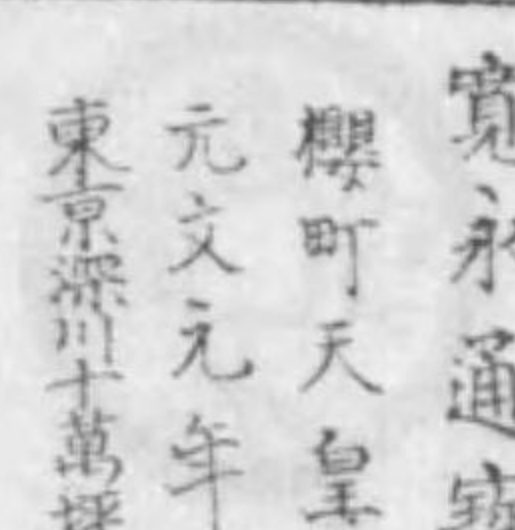 寛永通寳
櫻町天皇
元文元年
東京深川十萬坪